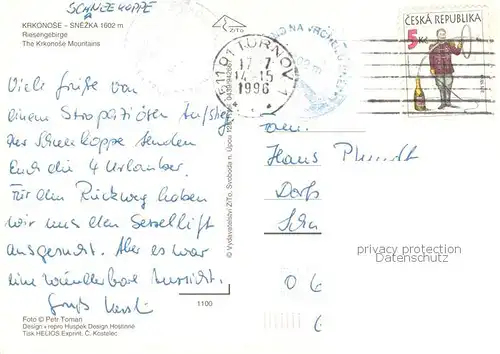 SCHNEEKOPPE
KRKONOŠE – SNĚŽKA 1602 m
Riesengebirge
The Krkonoše Mountains
ZITo
511 01 TURNOV 1
17.-7.
14-15
1996
ČESKÁ REPUBLIKA
5 Kč
Viele Grüße von
einem Strapaziösen Aufstieg
der Schneekoppe senden
Euch die 4 Urlauber.
Für den Rückweg haben
wir uns den Sessellift
ausgesucht. Aber es war
eine wunderbare Aussicht.
Gruß
Fam.
Hans
Dorfs
0 6
© Vydavatelství ZITo, Svoboda n. Úpou
1100
Foto © Petr Toman
Design + repro Huspek Design Hostinné
Tisk HELIOS Exprint, Č. Kostelec
privacy protection
Datenschutz